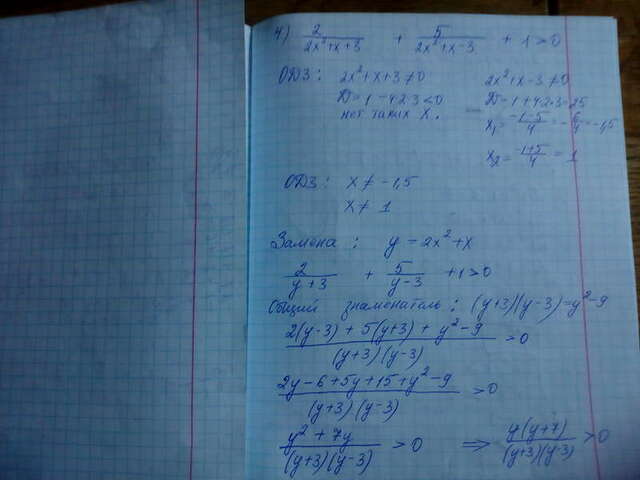 4) 2/(2x²+x+3) + 5/(2x²+x-3) + 1 > 0
ОДЗ: 2x²+x+3≠0 2x²+x-3≠0
D=1-4·2·3<0 D=1+4·2·3=25
нет таких x. x₁=(-1-5)/4=-6/4=-1,5
x₂=(-1+5)/4=1
ОДЗ: x≠-1,5
x≠1
Замена: y=2x²+x
2/(y+3) + 5/(y-3) +1>0
Общий знаменатель: (y+3)(y-3)=y²-9
(2(y-3)+5(y+3)+y²-9)/((y+3)(y-3)) >0
(2y-6+5y+15+y²-9)/((y+3)(y-3)) >0
(y²+7y)/((y+3)(y-3)) >0 ⇒ y(y+7)/((y+3)(y-3)) >0